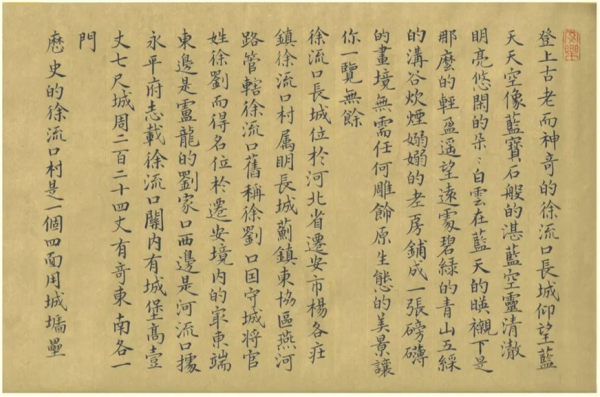 登上古老而神奇的徐流口長城仰望藍
天天空像藍寶石般的湛藍空靈清澈
明亮悠閑的朵〻白雲在藍天的暎襯下是
那麼的輕盈遥望遠處碧綠的青山五綵
的溝谷炊煙嫋嫋的老房鋪成一張磅礴
的畫境無需任何雕飾原生態的美景讓
你一覽無餘
徐流口長城位於河北省遷安市楊各莊
鎮徐流口村属明長城薊鎮東協區燕河
路管轄徐流口舊稱徐劉口因守城將官
姓徐劉而得名位於遷安境内的最東端
東邊是盧龍的劉家口西邊是河流口據
永平府志載徐流口關内有城堡高壹
丈七尺城周二百二十四丈有奇東南各一
門
歷史的徐流口村是一個四面用城墻壘